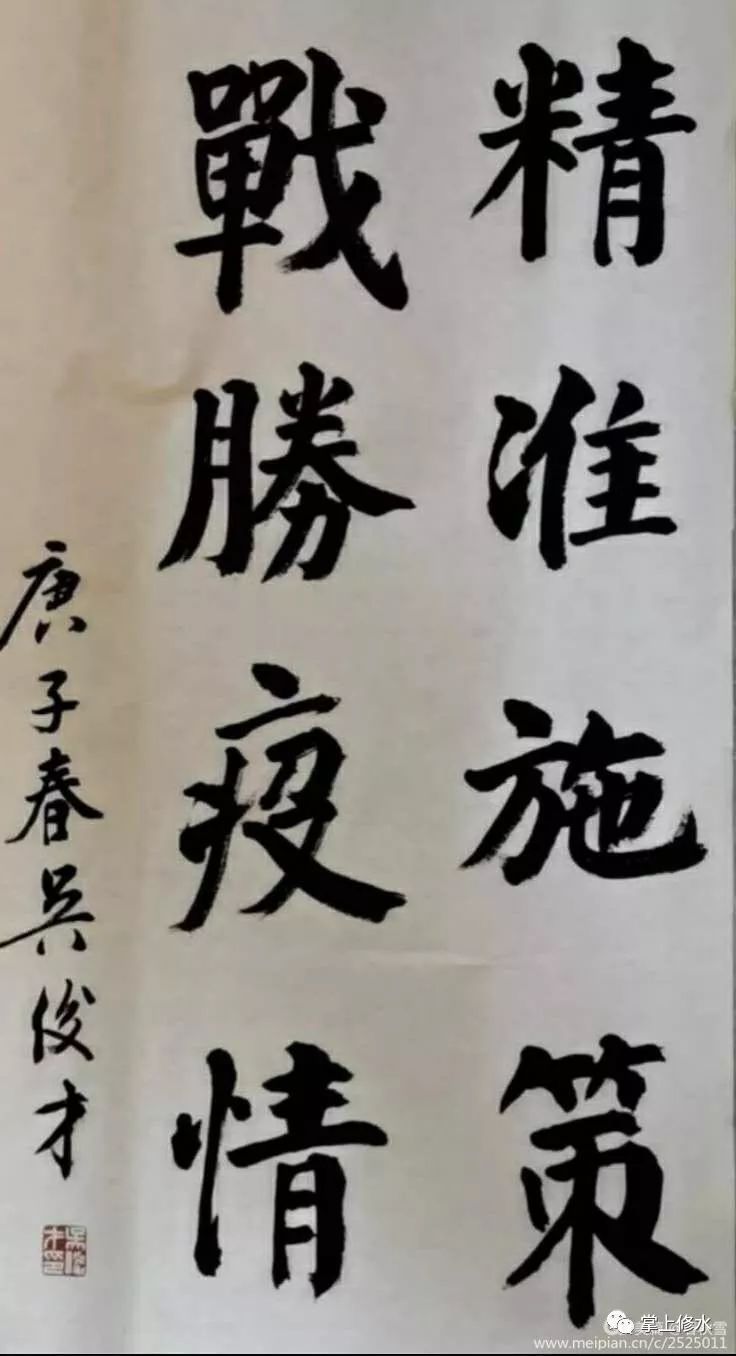 精准施策
戰勝疫情
庚子春吳俊才
掌上修水
www.meipian.cn/c/2525011